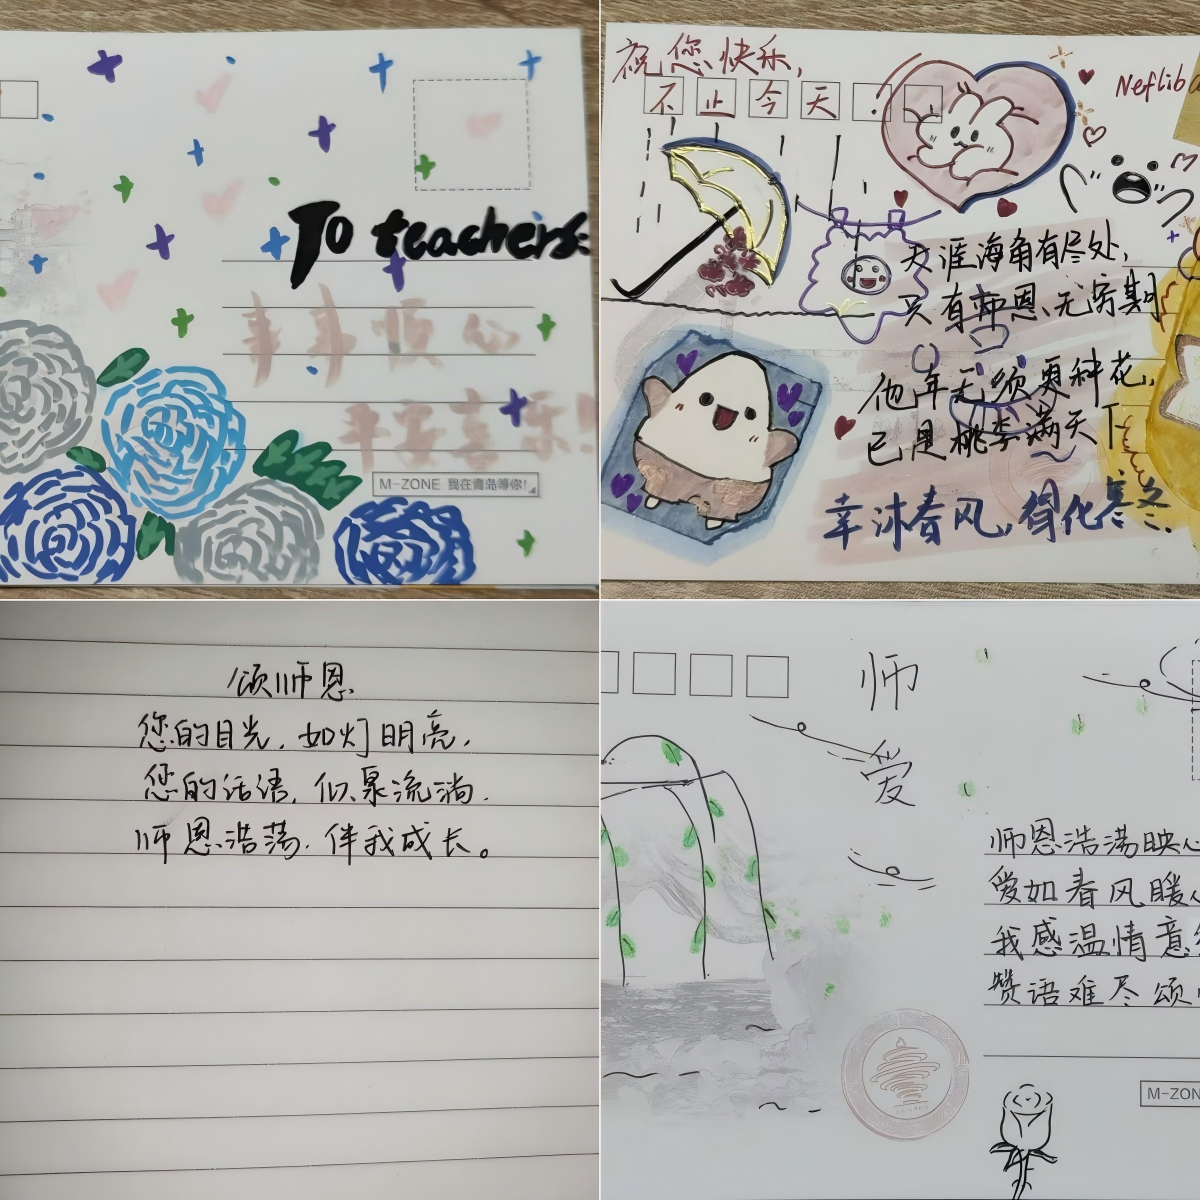 To teachers:
事事顺心
平安喜乐!
M-ZONE 我在青岛等你!
祝您快乐,
不止今天!
天涯海角有尽处,
只有师恩无穷期
他年无须更种花,
已是桃李满天下
幸沐春风,得化寒冬.
颂师恩
您的目光,如灯明亮,
您的话语,似泉流淌.
师恩浩荡.伴我成长。
师
爱
师恩浩荡映心
爱如春风暖
我感温情意
赞语难尽颂
M-ZON